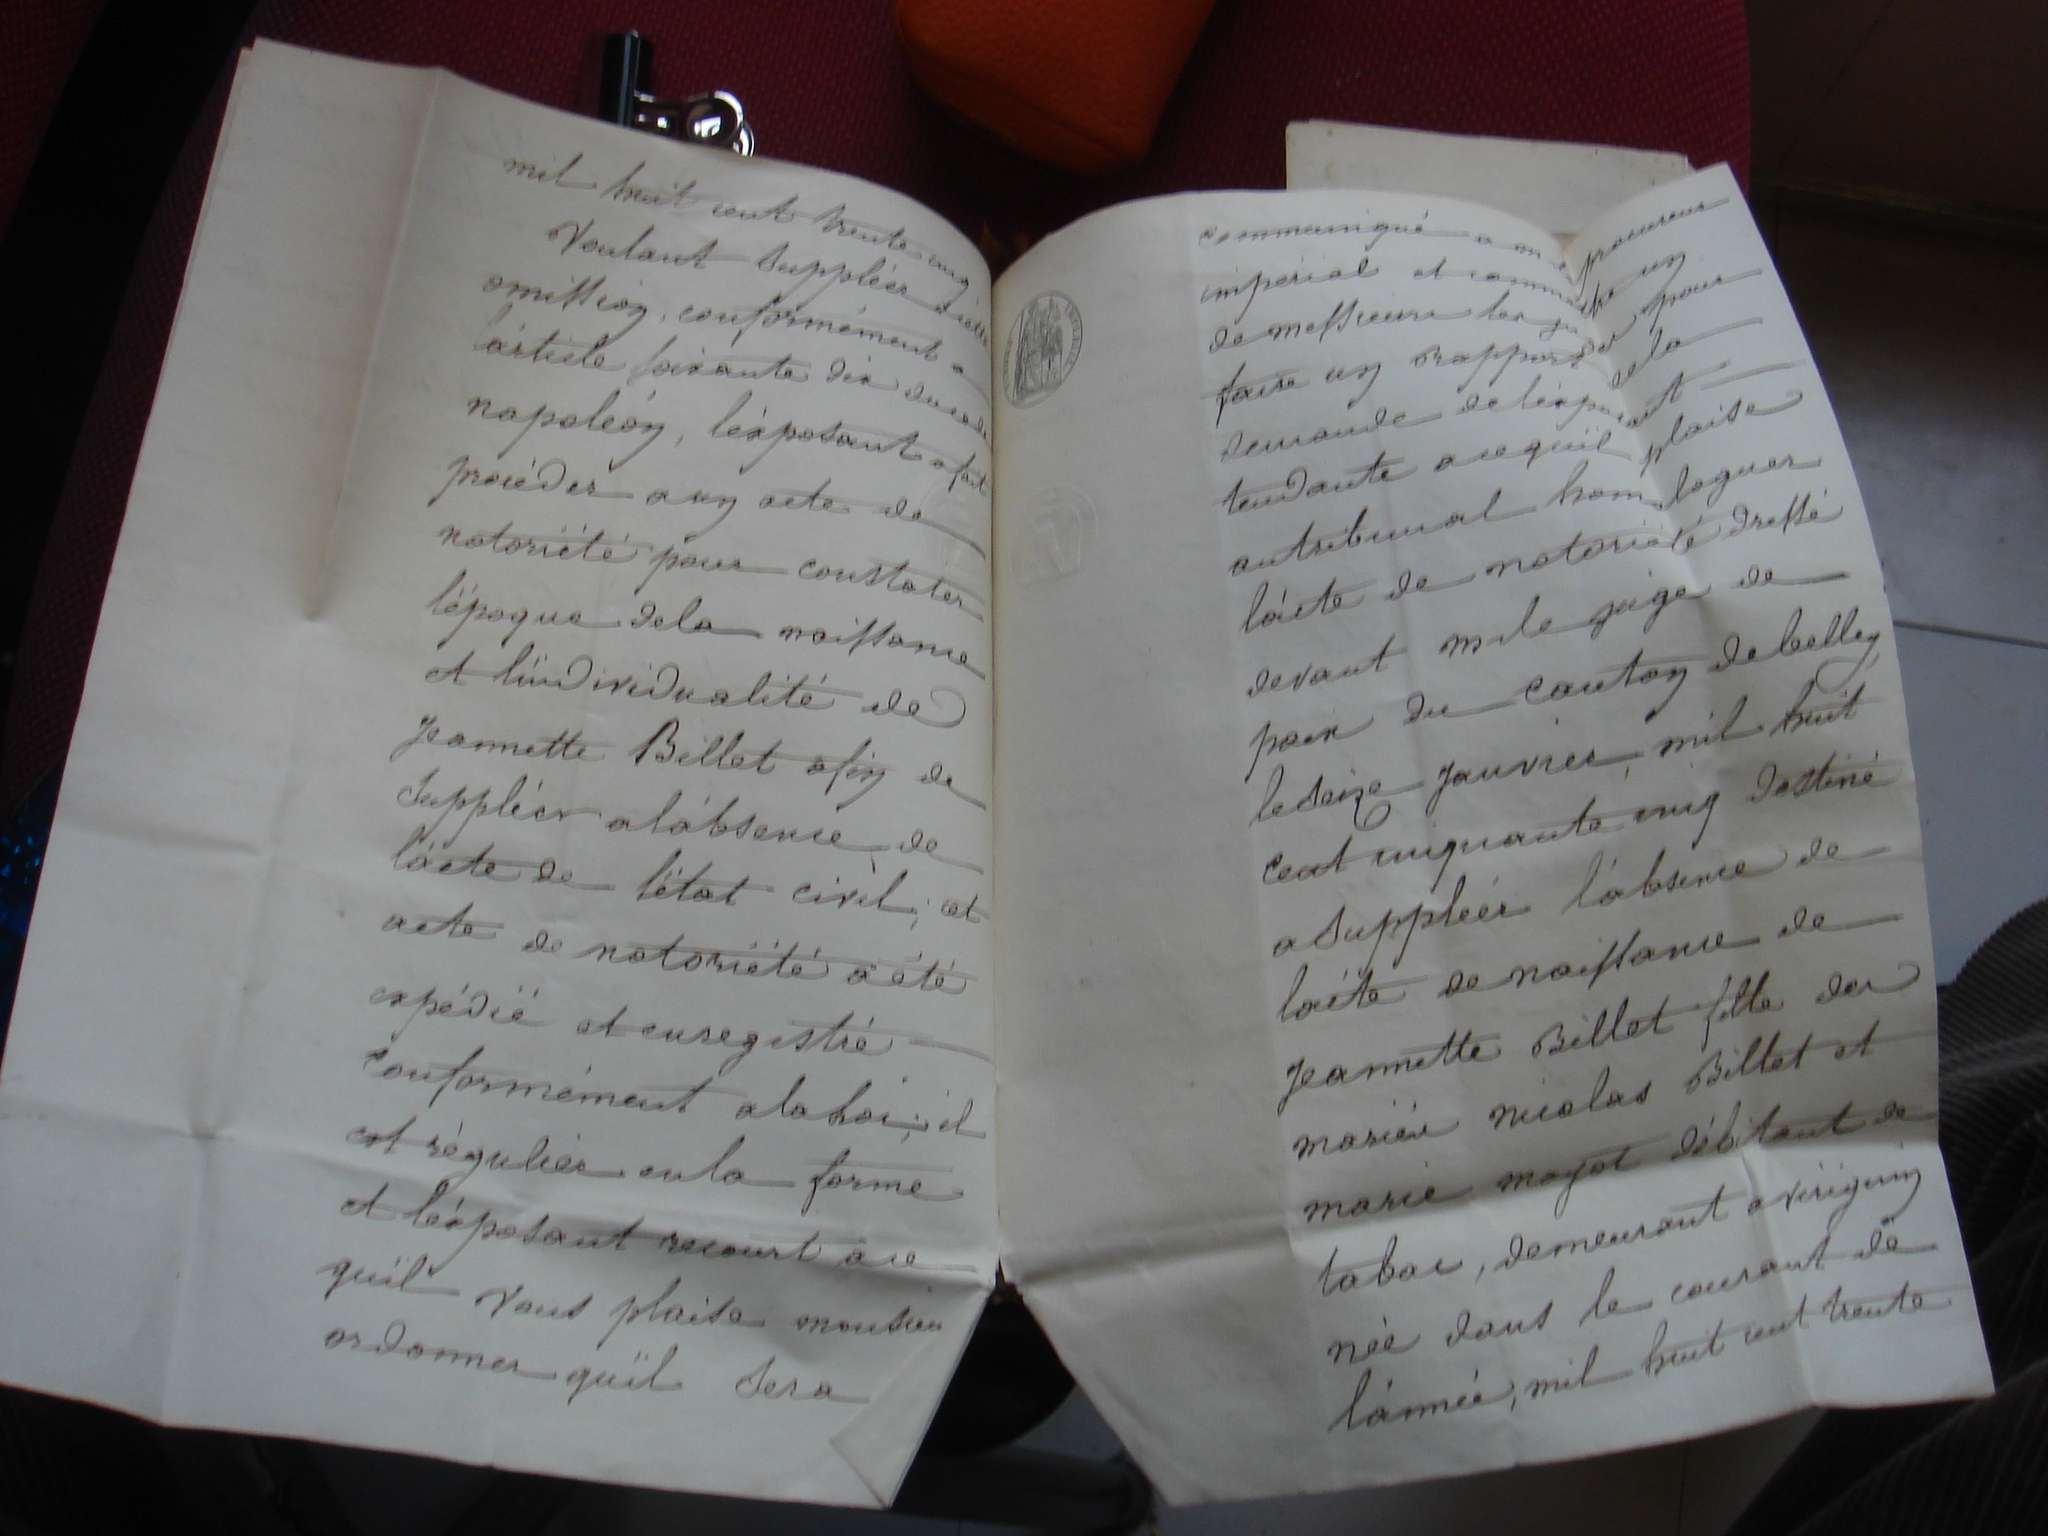 mil huit cent trente cinq
Voulant suppléer à cette
omission, conformément a
l'article soixante dix du code
napoléon, l'exposant a fait
procéder a un acte de
notoriété pour constater
l'époque dela naissance
et l'individualité de
Jeannette Billet afin de
suppléer al'absence, de
l'acte de l'état civil; cet
acte de notoriété a été
expédié et enregistré
conformément ala loi; il
est régulier enla forme
et l'exposant recourt a ce
qu'il vous plaise monsieur
ordonner qu'il sera
communiqué a m le procureur
impérial et commettre un
de messieurs les juges pour
faire un rapport de la
demande de l'exposant
tendante a ce qu'il plaise
autribunal homologuer
l'acte de notoriété dressé
devant m le juge de
paix du canton de belley
le seize janvier, mil huit
cent cinquante cinq destiné
a suppléer l'absence de
l'acte de naissance de
Jeannette Billet fille des
mariés nicolas Billet et
marie moyat débitant de
tabac, demeurant a virignin
née dans le courant de
l'année, mil huit cent trente